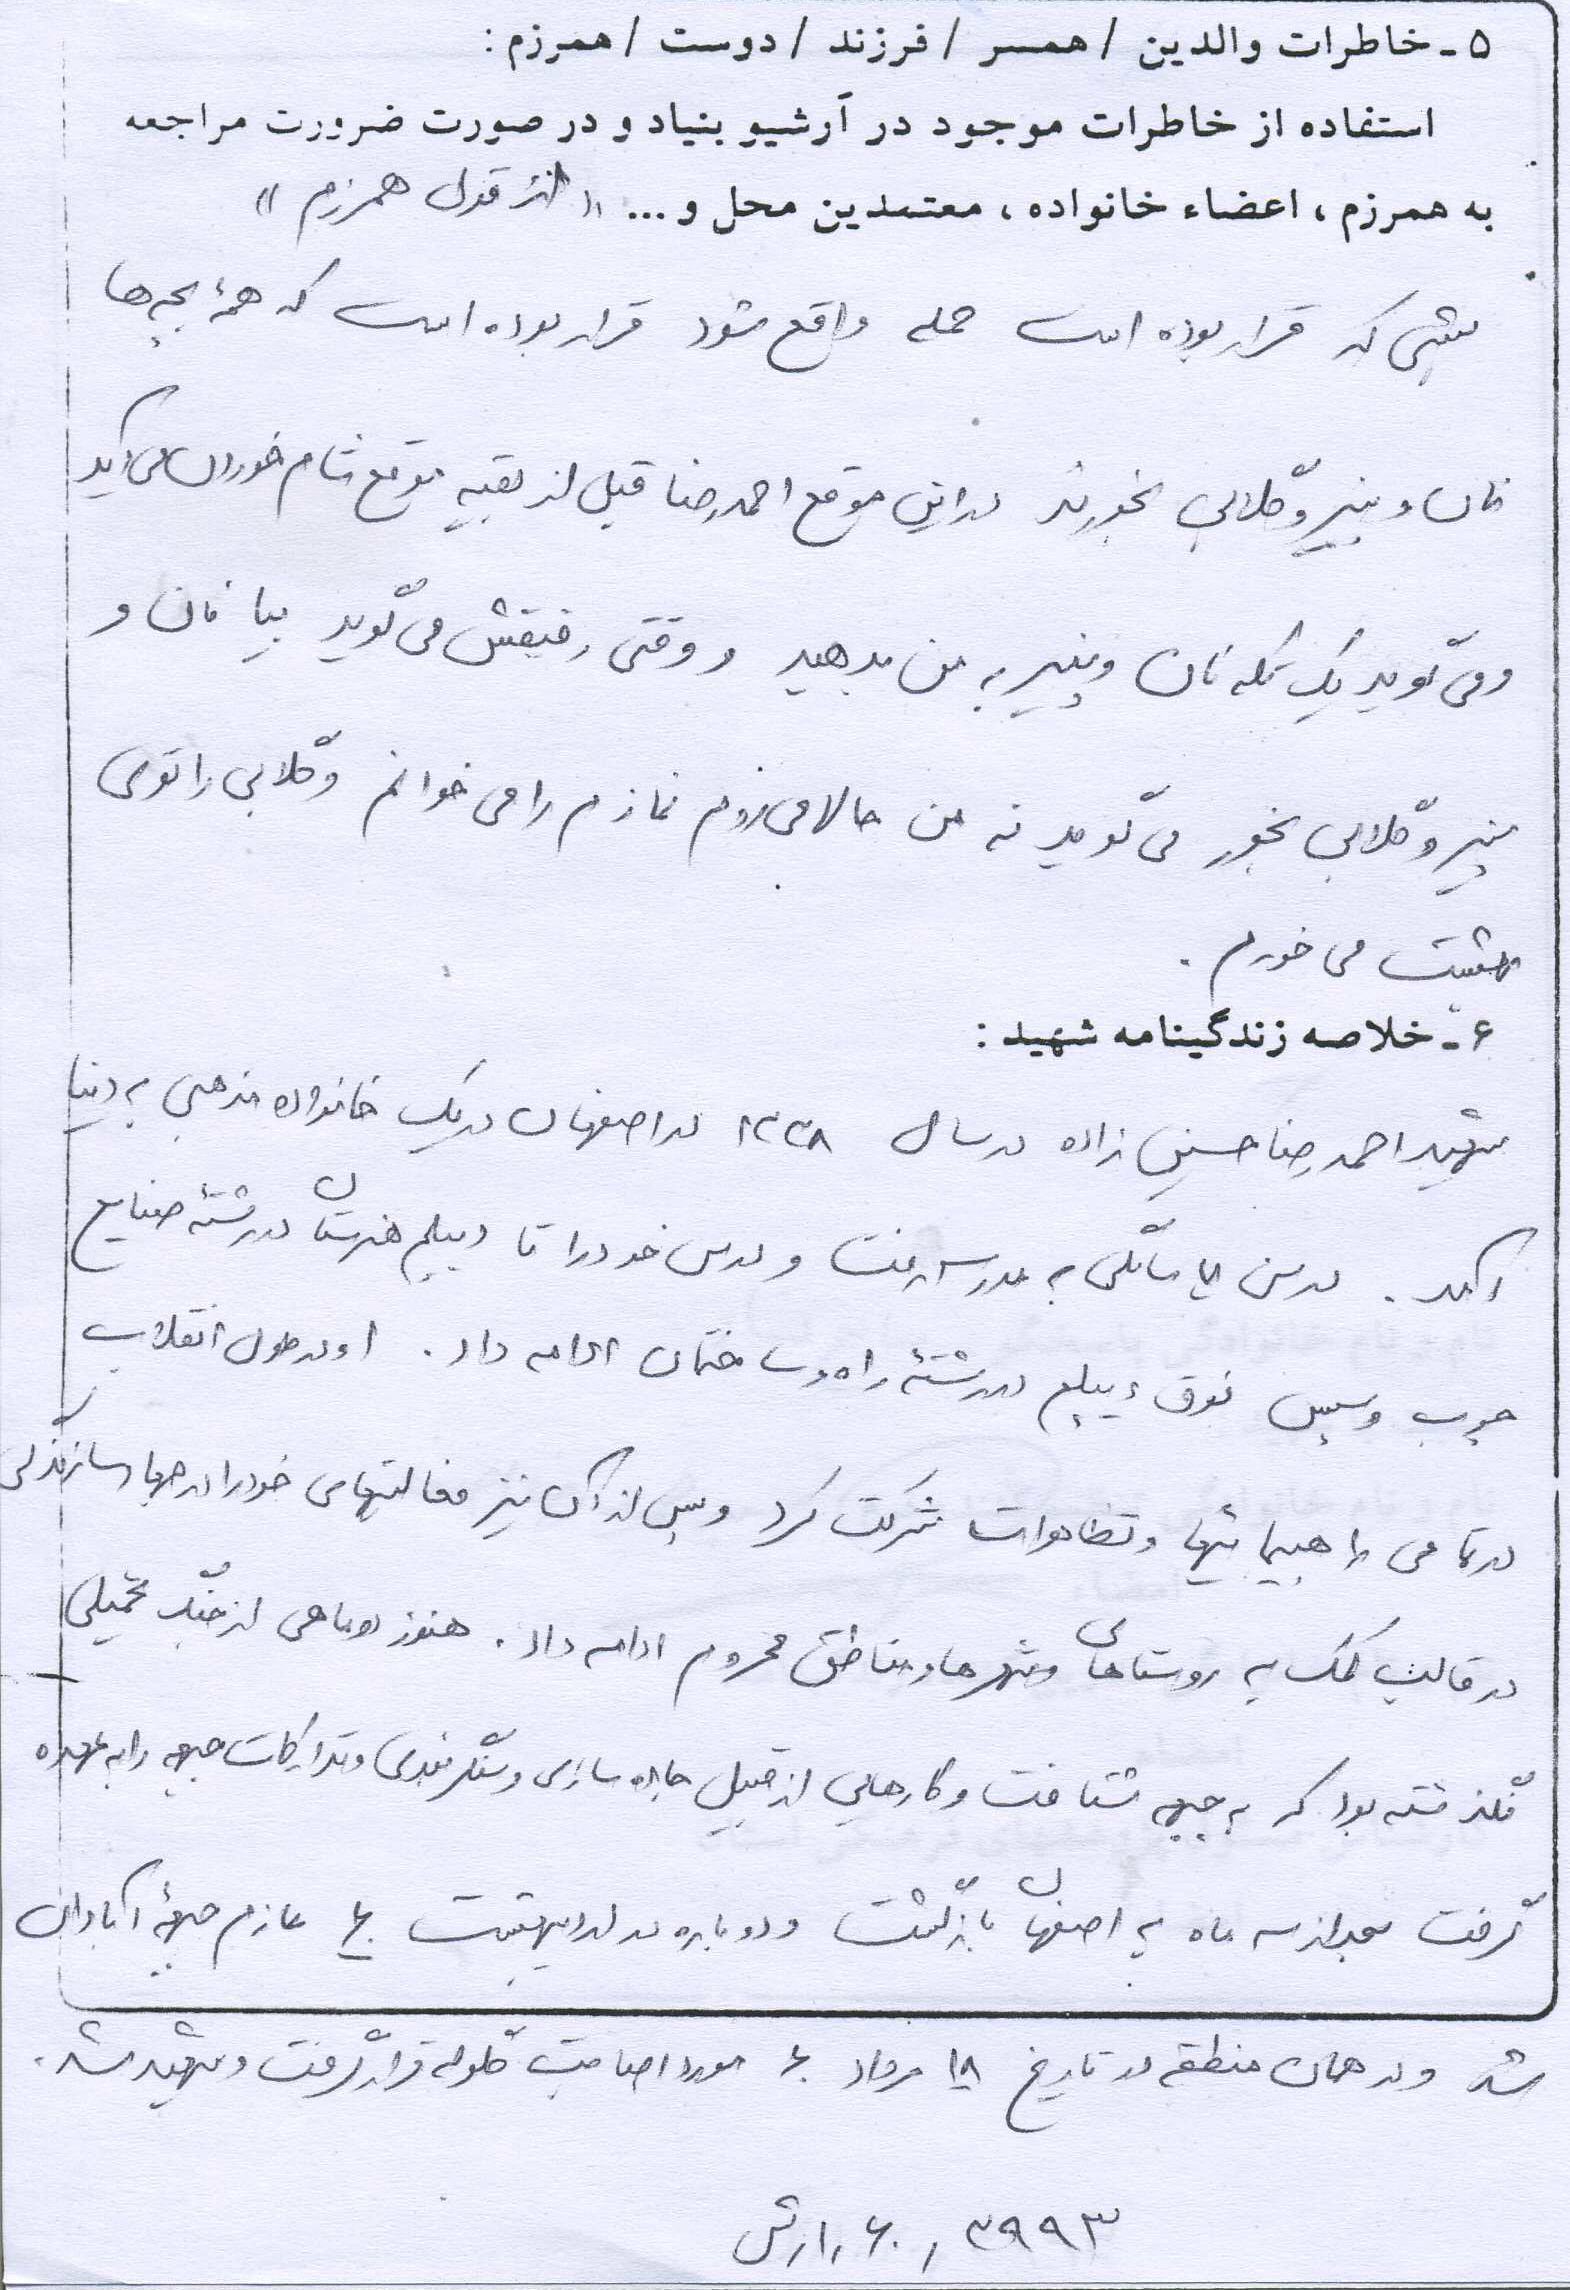 ۵ - خاطرات والدین / همسر / فرزند / دوست / همرزم :
استفاده از خاطرات موجود در آرشیو بنیاد و در صورت ضرورت مراجعه
به همرزم ، اعضاء خانواده ، معتمدین محل و ... « از قول همرزم »
شبی که قرار بوده است حمله واقع شود قرار بوده است که همهٔ بچه‌ها
نان و پنیر و گلابی بخورند در این موقع احمدرضا قبل از بقیه موقع شام خوردن می‌آید
و می‌گوید یک تکه نان و پنیر به من بدهید و وقتی رفیقش می‌گوید بیا نان و
پنیر و گلابی بخور می‌گوید نه من حالا می‌روم نمازم را می خوانم و گلابی را توی
بهشت می خورم .
۶ - خلاصه زندگینامه شهید :
شهید احمدرضا حسینی زاده در سال ۱۳۳۸ در اصفهان در یک خانواده مذهبی به دنیا
آمد . در سن ۷ سالگی به مدرسه رفت و درس خود را تا دیپلم هنرستان در رشتهٔ صنایع
چوب و سپس فوق دیپلم در رشتهٔ راه و ساختمان ادامه داد . او در طول انقلاب
در تمامی راهپیمائیها و تظاهرات شرکت کرد و پس از آن نیز فعالیتهای خود را در جهاد سازندگی
در قالب کمک به روستاهای و شهرها و مناطق محروم ادامه داد . هنوز دو ماهی از جنگ تحمیلی
نگذشته بود که به جبهه شتافت و کارهایی از قبیل جاده سازی و سنگربندی و تدارکات جبهه را به عهده
گرفت بعد از سه ماه به اصفهان بازگشت و دوباره در اردیبهشت ۶۰ عازم جبههٔ آبادان
شد و در همان منطقه در تاریخ ۱۸ مرداد ۶۰ مورد اصابت گلوله قرار گرفت و شهید شد .
۳۹۹۳ , ۶۰